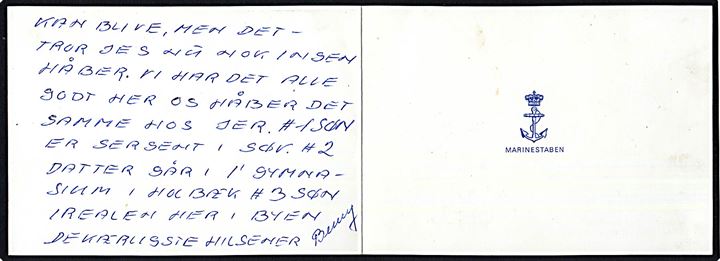 KAN BLIVE, MEN DET -
TROR JEG NÚ NOK INGEN
HÅBER. VI HAR DET ALLE
GODT HER OG HÅBER DET
SAMME HOS JER. #1 SØN
ER SERGENT I SØV. #2
DATTER GÅR I 1' GYMNA-
SIUM I HOLBÆK #3 SØN
I REALEN HER I BYEN
DE KÆRLIGSTE HILSENER Benny
MARINESTABEN